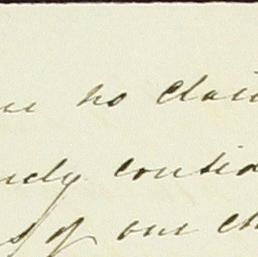 no clai
ndy consid
s of our ch